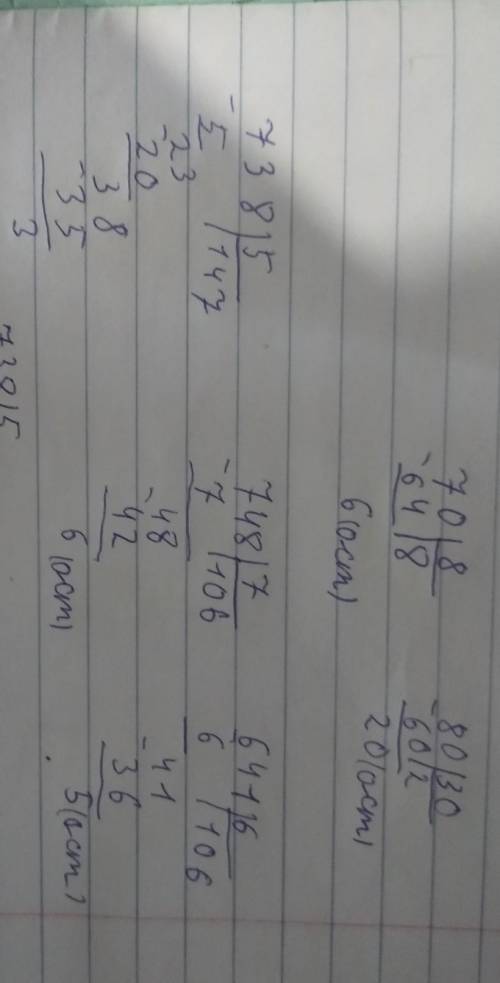 70|8 80|30
-64|8 -60|2
6(ост) 20(ост)
738|5 748|7 641|6
-5 |147 -7 |106 6 |106
-23 -48 -41
20 42 36
38 6(ост) 5(ост)
-35
3